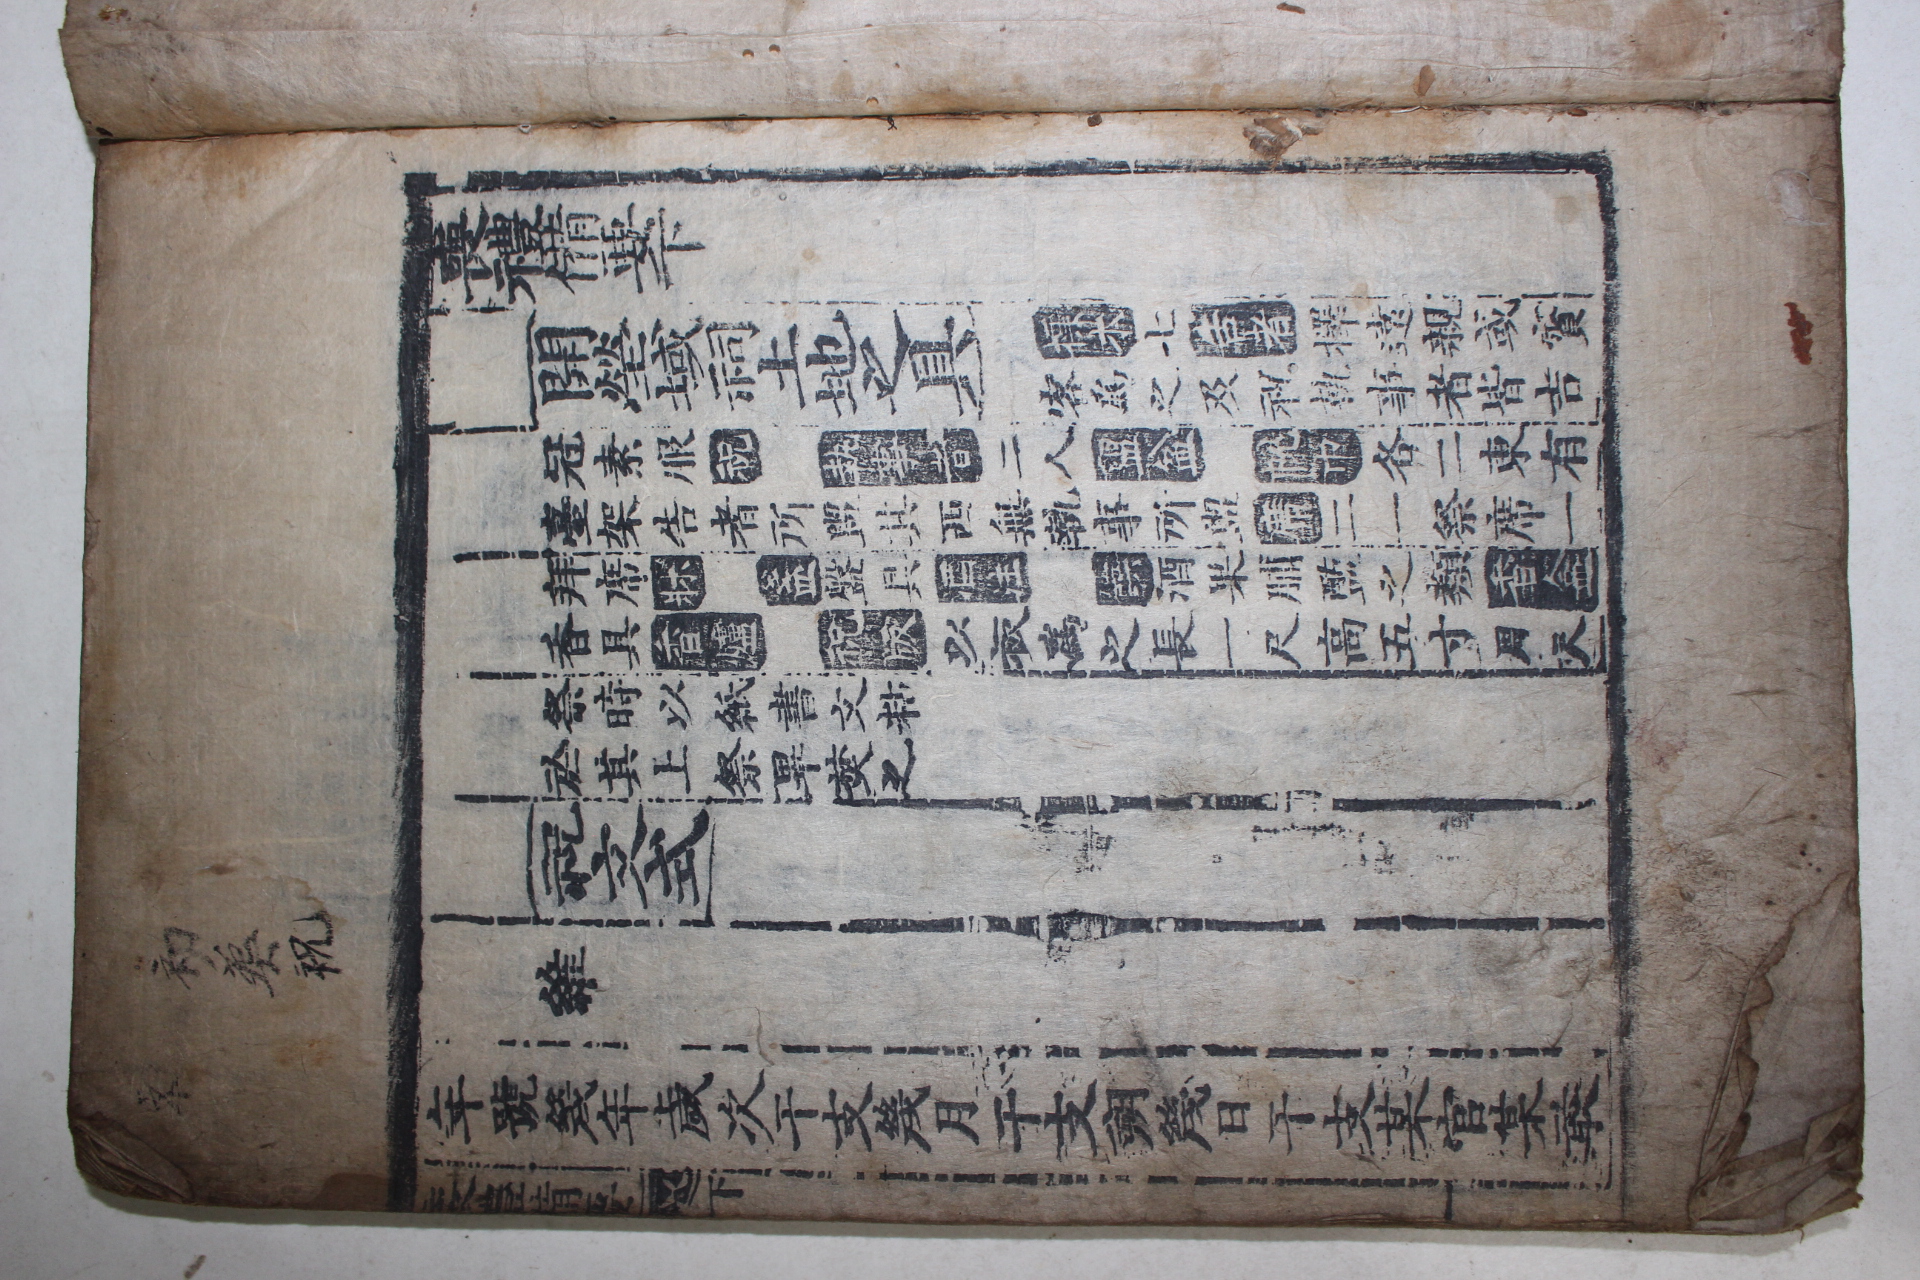 喪禮備要下
開塋域祠土地之具
標木七告者擇遠親或賓
客爲之及祝執事者皆吉
冠素服祝執事者二人盥盆帨巾各二東有
臺架告者所盥其西無執事所盥席二一祭席一
拜席牀盞盤具酒注 酒果脯醢之類香盒
香具香爐祝版以板爲之長一尺高五寸周尺
祭時以紙書文粘
於其上祭畢焚之
祝文式
維
年號幾年歲次干支幾月干支朔幾日干支某官某敢
喪禮備要 卷之下
初葬祝